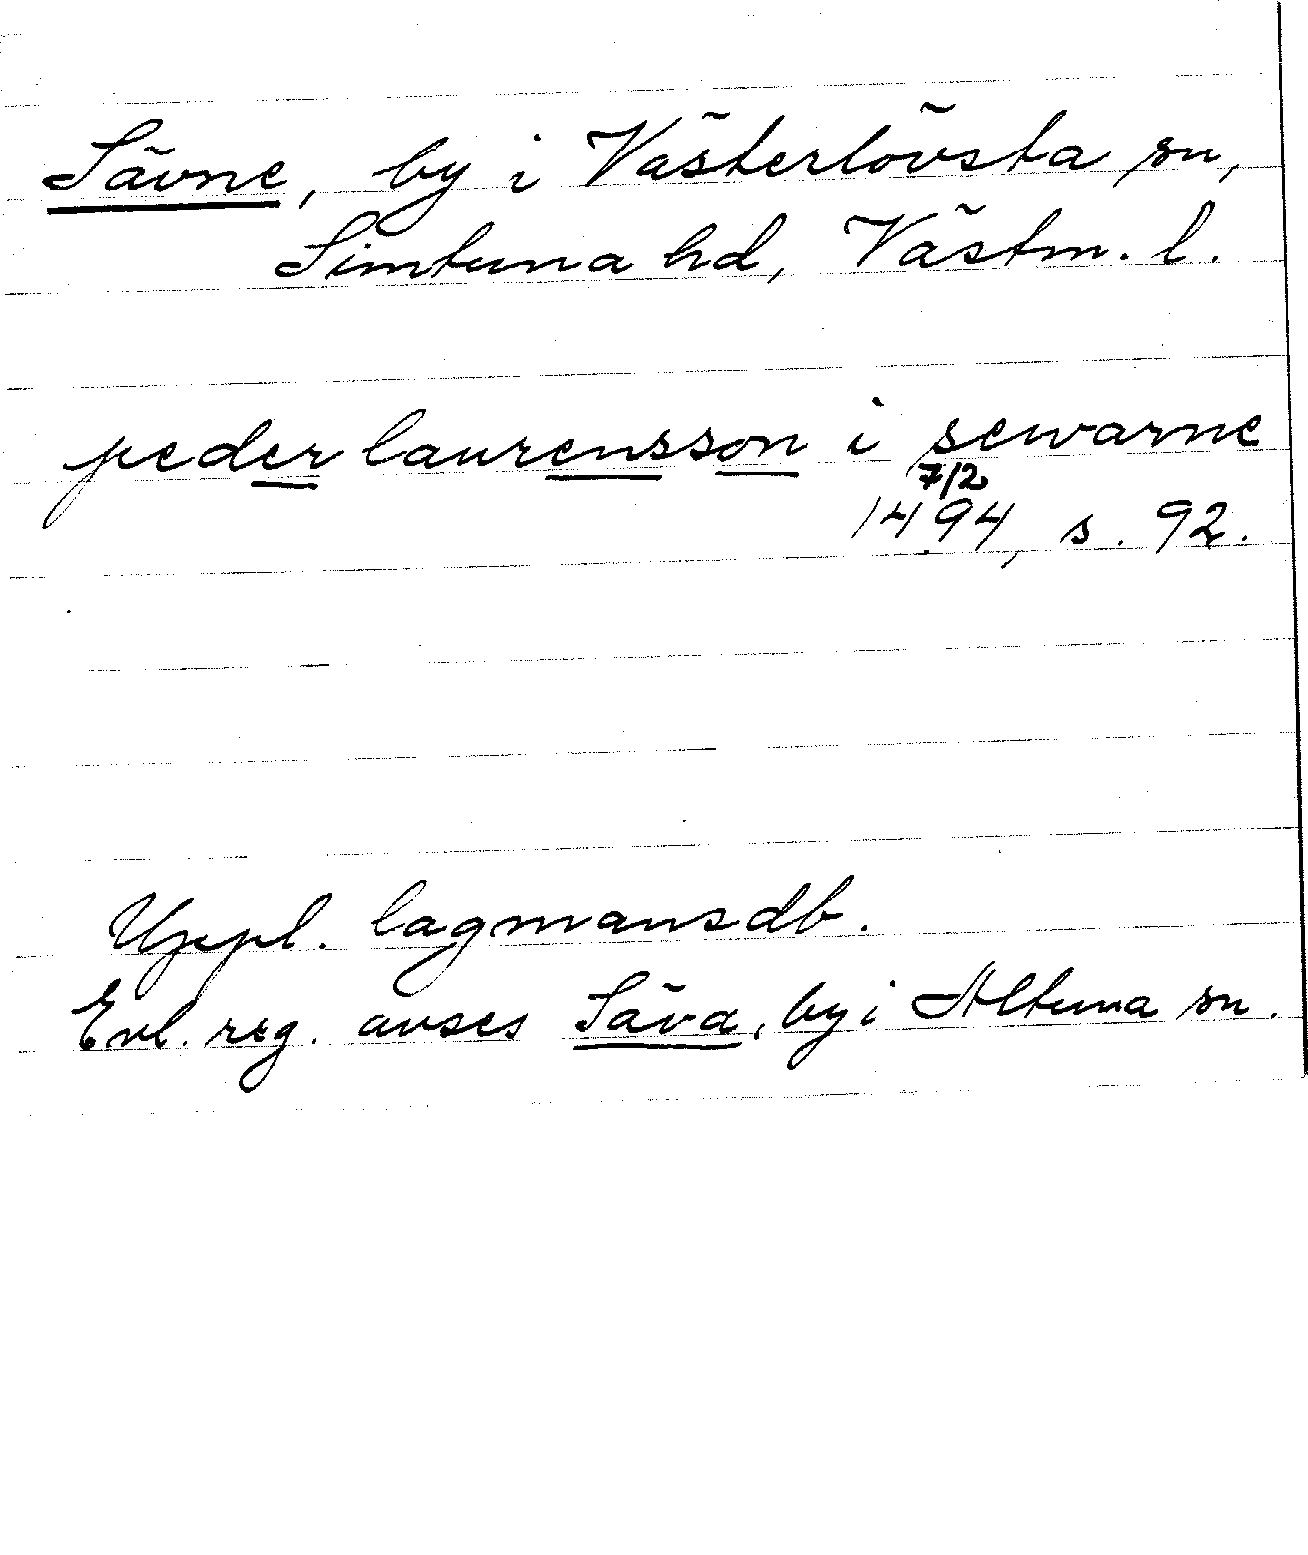 Sävne, by i Västerlövsta sn,
Simtuna hd, Västm. l.
peder laurensson i sewarne
7/2
1494, s. 92.
Uppl. lagmansdb.
Enl. reg. avses Säva, by i Altuna sn.